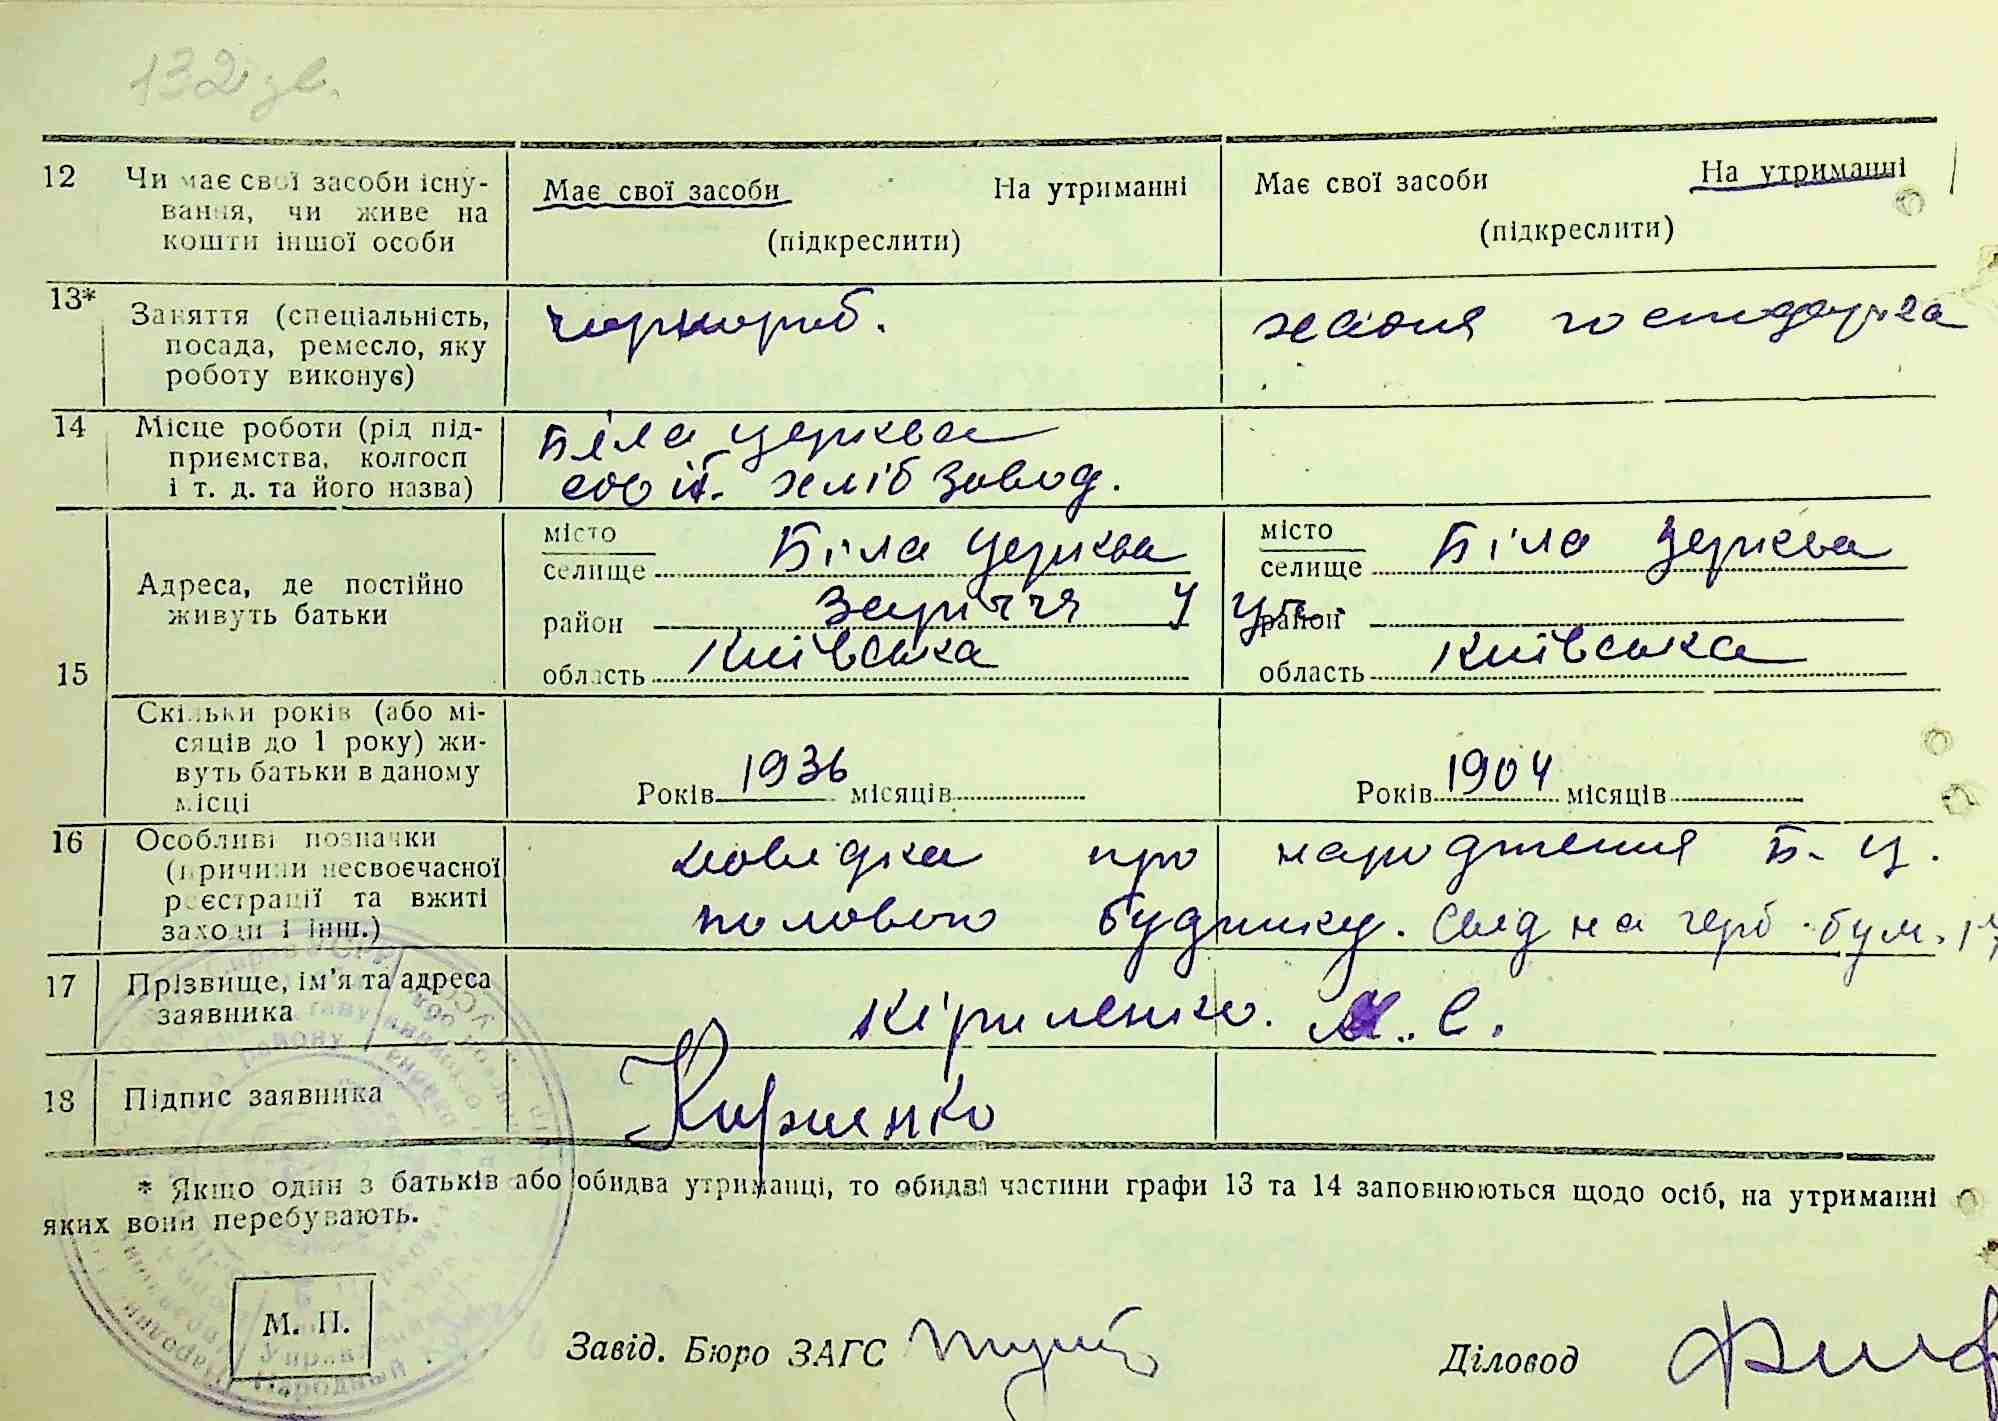 132 зв.
12 Чи має свої засоби існу- Має свої засоби На утриманні Має свої засоби На утриманні
вання, чи живе на
кошти іншої особи (підкреслити) (підкреслити)
13* Заняття (спеціальність, чорнороб. хатня господарка
посада, ремесло, яку
роботу виконує)
14 Місце роботи (рід під- Біла церква
приємства, колгосп хліб завод.
і т. д. та його назва)
15 Адреса, де постійно
живуть батьки
місто Біла церква місто Біла церква
селище селище
район Заріччя район
область Київська область Київська
Скільки років (або мі-
сяців до 1 року) жи-
вуть батьки в даному
місці
Років 1936 місяців Років 1904 місяців
16 Особливі позначки довідка про народження Б-Ц.
(причини несвоєчасної
реєстрації та вжиті пологового будинку. Свід на герб. бум.
заходи і інш.)
17 Прізвище, ім'я та адреса
заявника Кіриленко. М. Є.
18 Підпис заявника Кириленко
* Якщо один з батьків або обидва утриманці, то обидві частини графи 13 та 14 заповнюються щодо осіб, на утриманні
яких вони перебувають.
М. П.
Завід. Бюро ЗАГС Діловод